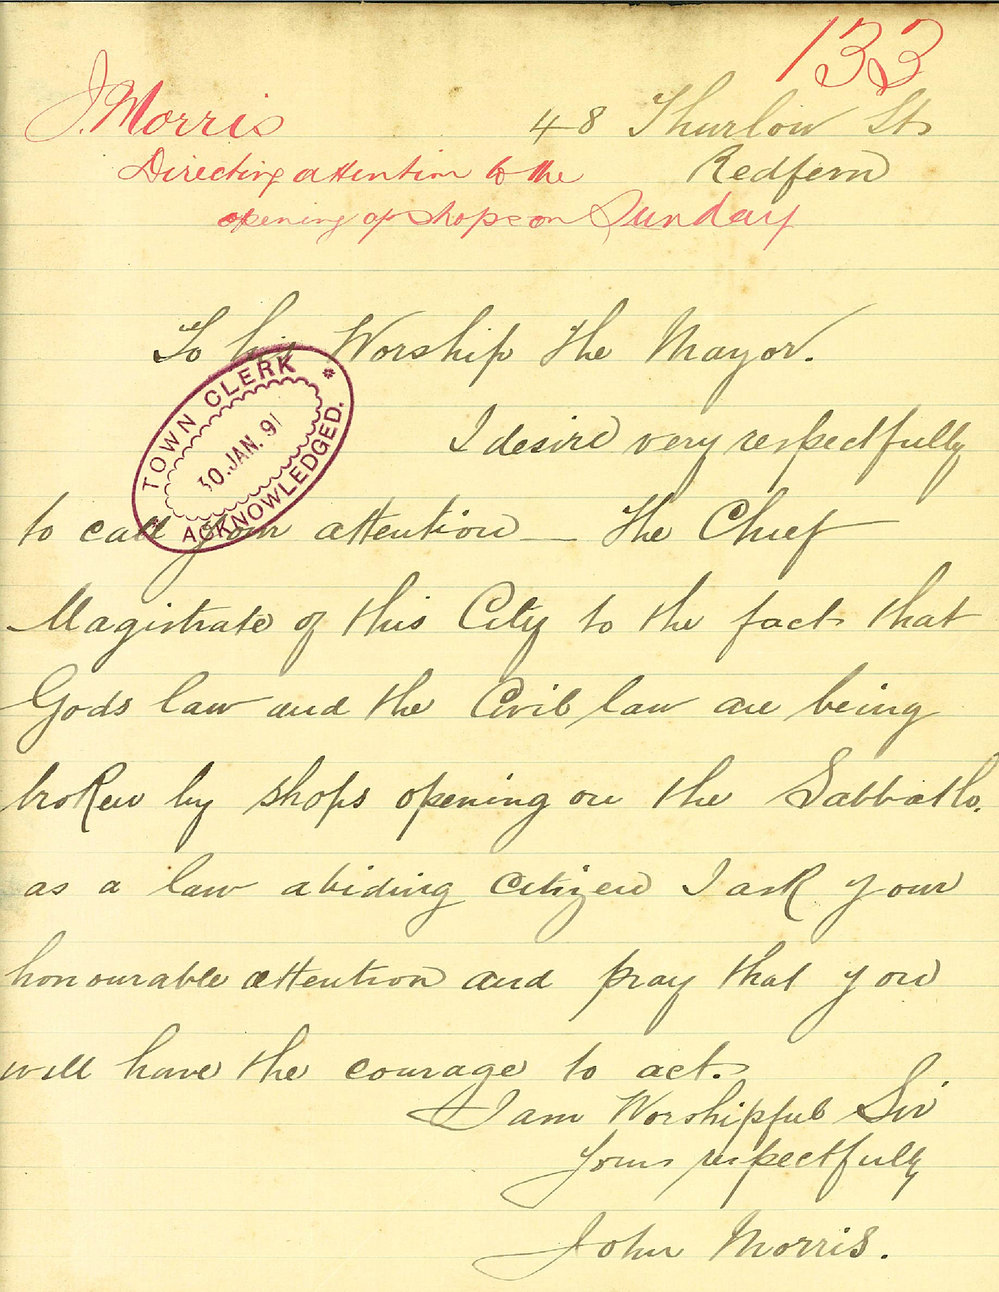 133
J. Morris
48 Thurlow St
Directing attention to the
Redfern
opening of shops on Sunday
To his Worship the Mayor.
TOWN CLERK
30. JAN. 91
ACKNOWLEDGED.
I desire very respectfully
to call your attention — the Chief
Magistrate of this City to the fact that
Gods law and the Civil law are being
broken by shops opening on the Sabbath.
as a law abiding citizen I ask your
honourable attention and pray that you
will have the courage to act.
I am Worshipful Sir
Yours respectfully
John Morris.